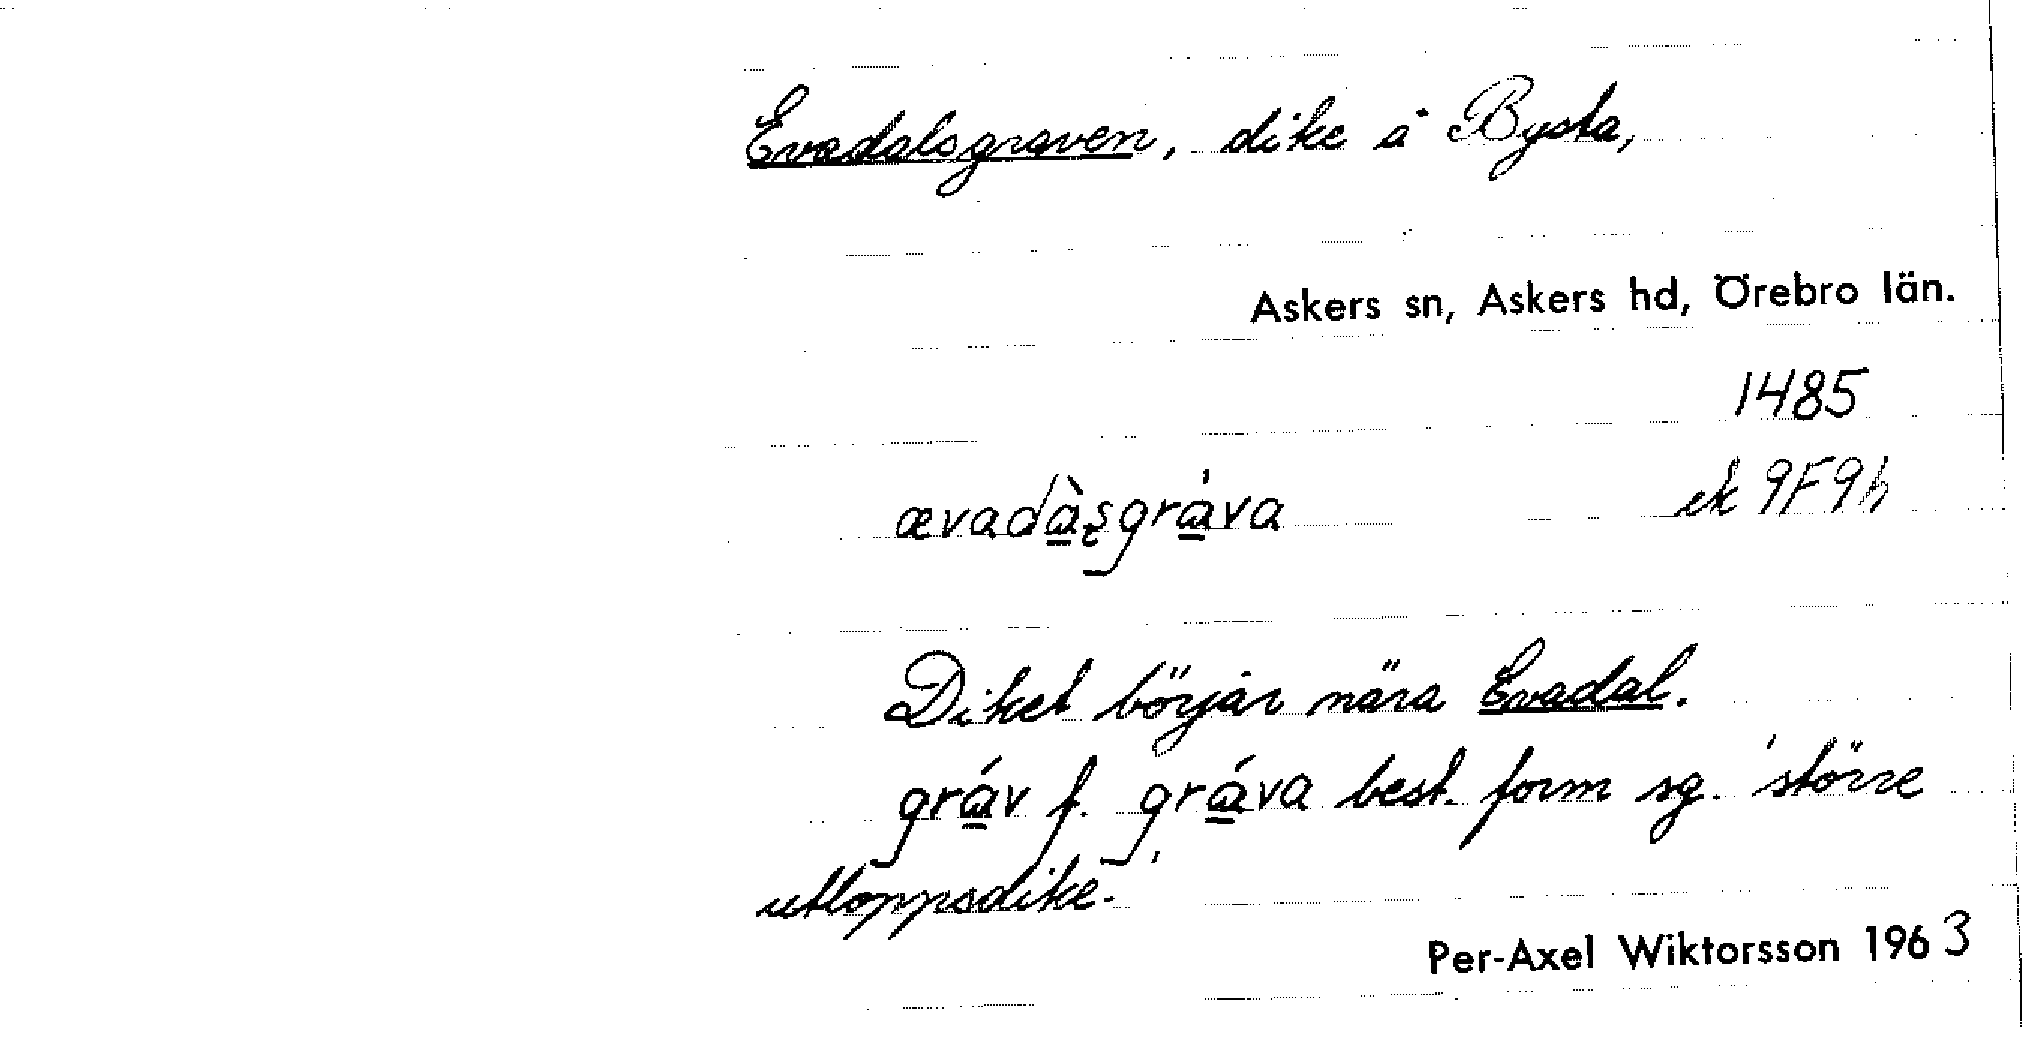 Evadalsgraven, dike å Bysta,
Askers sn, Askers hd, Örebro län.
1485
ævadà̲ʂgrá̲va ek 9F9h
Diket börjar nära Evadal.
grá̲v f. grá̲va best. form sg. 'större
utloppsdike'.
Per-Axel Wiktorsson 1963